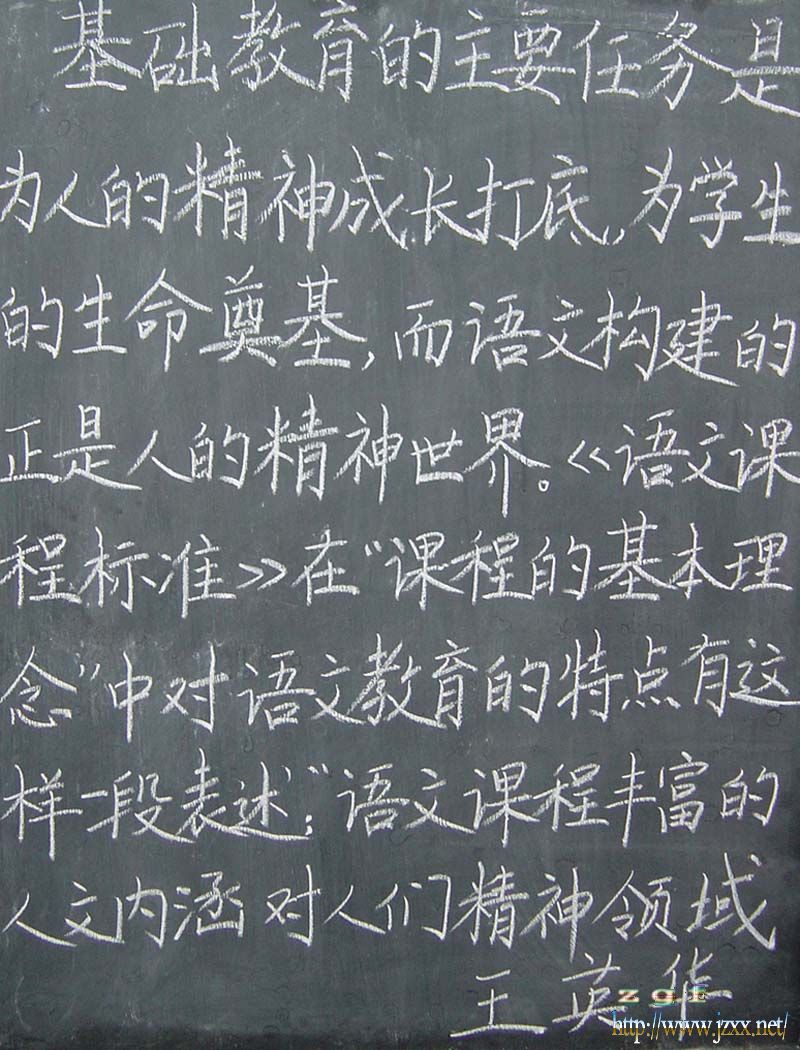 基础教育的主要任务是
为人的精神成长打底,为学生
的生命奠基,而语文构建的
正是人的精神世界。《语文课
程标准》在“课程的基本理
念”中对语文教育的特点有这
样一段表述:“语文课程丰富的
人文内涵 对人们精神领域
王英华
zgF
http://www.jzxx.net/